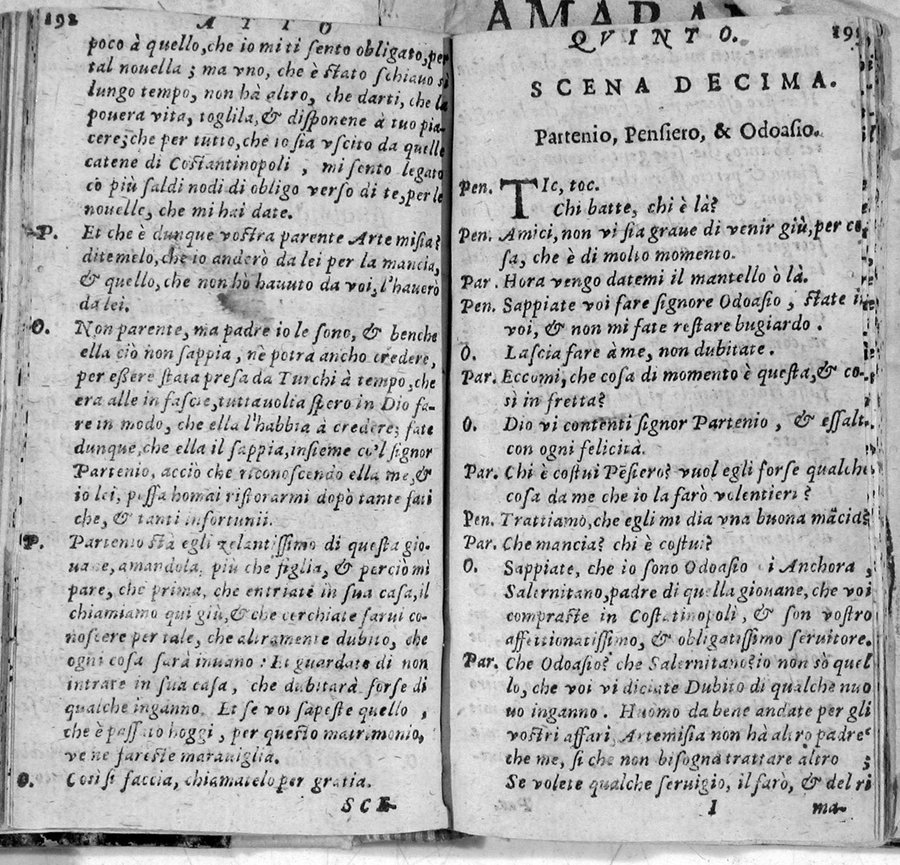 AMARAN
192
ATTO
poco à quello, che io mi ti sento obligato, per
tal nouella; ma vno, che è stato schiauo sì
lungo tempo, non hà altro, che darti, che la
pouera vita, toglila, & disponene à tuo pia-
cere; che per tutto, che io sia vscito da quelle
catene di Costantinopoli, mi sento legato
cō più saldi nodi di obligo verso di te, per le
nouelle, che mi hai date.
P. Et che è dunque vostra parente Artemisia?
ditemelo, che io anderò da lei per la mancia,
& quello, che non hò hauuto da voi, l'hauerò
da lei.
O. Non parente, ma padre io le sono, & benche
ella ciò non sappia, nè potra ancho credere,
per eßere stata presa da Turchi à tempo, che
era alle in fascie, tuttauolta spero in Dio fa-
re in modo, che ella l'habbia à credere; fate
dunque, che ella il sappia, insieme co'l signor
Partenio, acciò che riconoscendo ella me, &
io lei, possa homai ristorarmi dopò tante fati
che, & tanti infortunii.
P. Partenio stà egli gelantissimo di questa gio-
uane, amandola, più che figlia, & perciò mi
pare, che prima, che entriate in sua casa, il
chiamiamo qui giù, & che cerchiate farui co-
noscere per tale, che altramente dubito, che
ogni cosa sarà inuano: Et guardate di non
intrare in sua casa, che dubitarà forse di
qualche inganno. Et se voi sapeste quello,
che è passato hoggi, per questo matrimonio,
ve ne fareste marauiglia.
O. Cosi si faccia, chiamatelo per gratia.
SCE-
QVINTO.
SCENA DECIMA.
Partenio, Pensiero, & Odoasio.
Pen. TIc, toc.
Chi batte, chi è là?
Pen. Amici, non vi sia graue di venir giù, per co
sa, che è di molto momento.
Par. Hora vengo datemi il mantello ò là.
Pen. Sappiate voi fare signore Odoasio, state in
voi, & non mi fate restare bugiardo.
O. Lascia fare à me, non dubitate.
Par. Eccomi, che cosa di momento è questa, & co-
sì in fretta?
O. Dio vi contenti signor Partenio, & essalt.
con ogni felicità.
Par. Chi è costui Pēsiero? vuol egli forse qualche
cosa da me che io la farò volentieri?
Pen. Trattiamo, che egli mi dia vna buona
Par. Che mancia? chi è costui?
O. Sappiate, che io sono Odoasio i Anchora,
Salernitano, padre di quella giouane, che voi
compraste in Costātinopoli, & son vostro
affettionatissimo, & obligatissimo seruitore.
Par. Che Odoasio? che Salernitano? io non sò quel
lo, che voi vi diciate Dubito di qualche nuo
uo inganno. Huomo da bene andate per gli
vostri affari, Artemisia non hà altro padre
che me, sì che non bisogna trattare altro
Se volete qualche seruigio, il farò, & del ri
I ma-